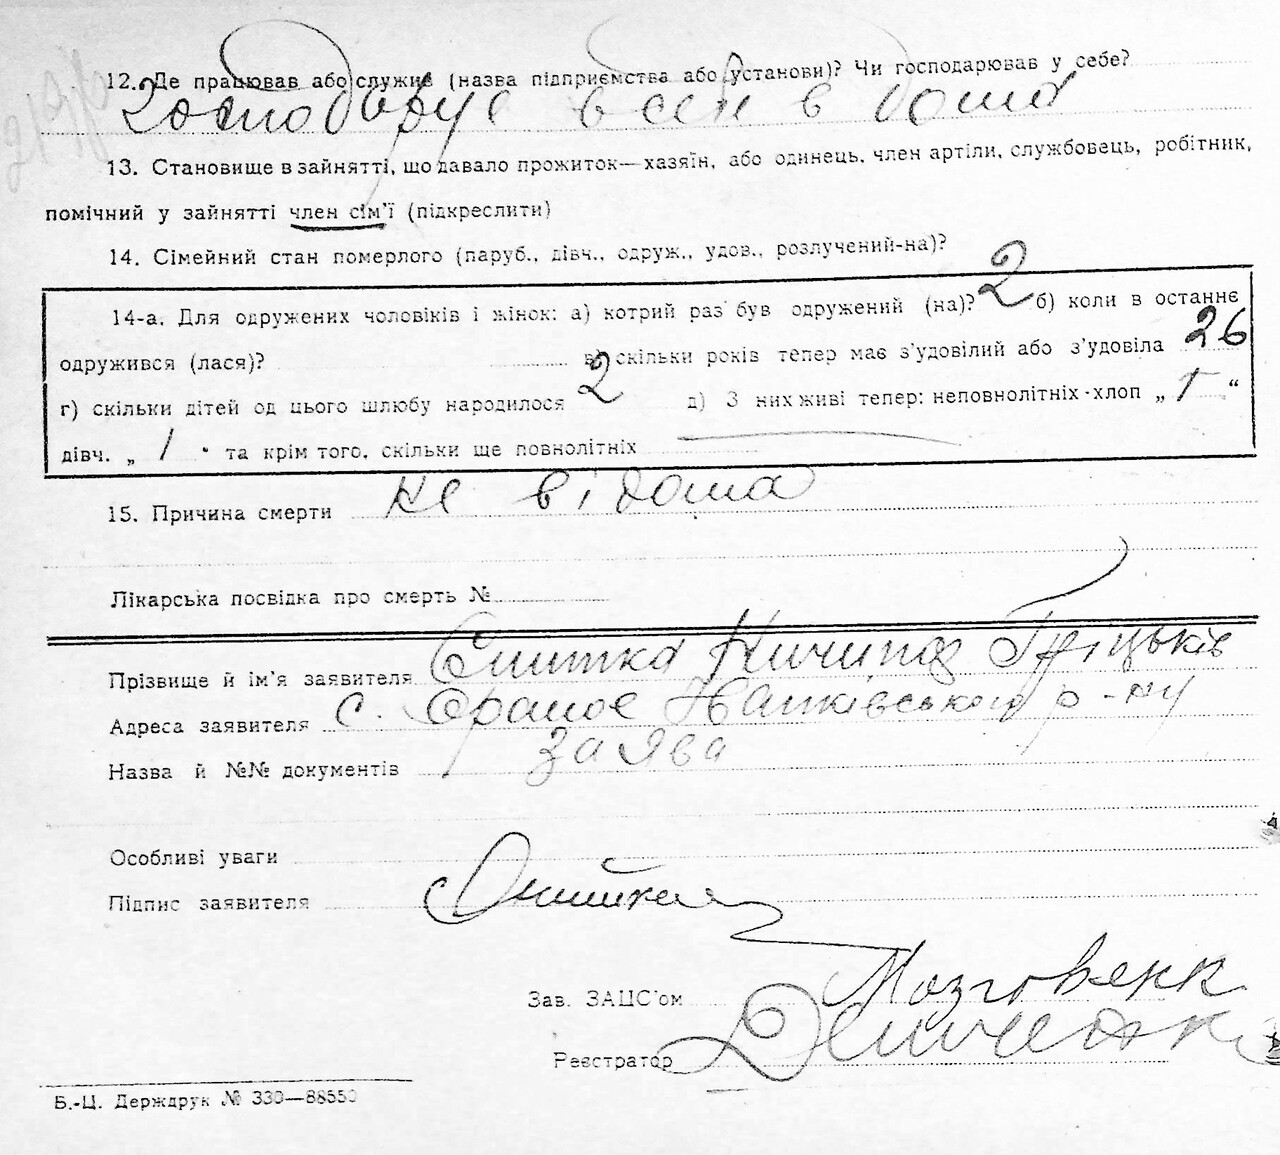 12. Де працював або служив (назва підприємства або установи)? Чи господарював у себе?
Господарує в себе в дома
13. Становище в зайнятті, що давало прожиток—хазяїн, або одинець, член артілі, службовець, робітник,
помічний у зайнятті член сім'ї (підкреслити)
14. Сімейний стан померлого (паруб., дівч., одруж., удов., розлучений-на)?
14-а. Для одружених чоловіків і жінок: а) котрий раз був одружений (на)? 2 б) коли в останнє
одружився (лася)? в) скільки років тепер має з'удовілий або з'удовіла 26
г) скільки дітей од цього шлюбу народилося 2 д) З них живі тепер: неповнолітніх-хлоп „ 1 “
дівч. „ 1 " та крім того, скільки ще повнолітніх
15. Причина смерти не відома
Лікарська посвідка про смерть №
Прізвище й ім'я заявителя Ничипор Гріцьків
Адреса заявителя с. р-ну
Назва й №№ документів заява
Особливі уваги
Підпис заявителя
Зав. ЗАЦС'ом
Реєстратор
Б.-Ц. Держдрук № 330—88550